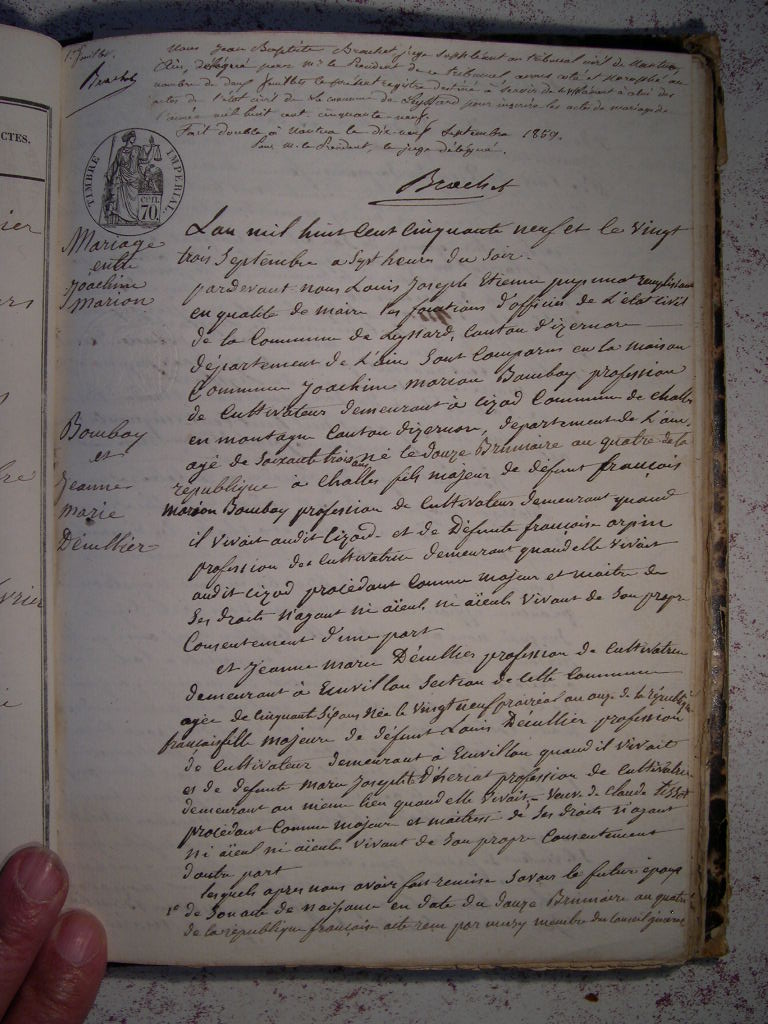 CTES.
1er feuillet.
Brachet
Nous Jean Baptiste Brachet, juge suppléant au tribunal civil de Nantua
Ain, délégué par Mr le Président de ce tribunal, avons coté et paraphé au
nombre de deux feuillets le présent registre destiné à servir de supplément à celui des
actes de l'état civil de la commune de Leyssard pour inscrire les actes de mariage de
l'année mil huit cent cinquante-neuf.
Fait double à Nantua le dix-neuf Septembre 1859.
Pour Mr le Président, le juge délégué.
Brachet
TIMBRE IMPÉRIAL
CEN. 70
Mariage
entre
Joachim
Marion
Bomboy
et
Jeanne
Marie
Décullier
Lan mil huit Cent Cinquante neuf et le Vingt
trois Septembre a Sept heures du Soir.
pardevant nous Louis Joseph Etienne remplissant
en qualité de maire les fonctions d'officier de L'état civil
de la Commune de Leyssard, Canton d'izernore
département de L'ain Sont Comparus en la maison
Commune Joachim Marion Bomboy profession
de Cultivateur demeurant à cizod Commune de challes
en montagne Canton dizernor, département de L'ain,
agé de Soixante trois ans né le douze Brumaire an quatre de la
république à Challes fils majeur de défunt françois
Marion Bomboy profession de Cultivateur demeurant quand
il vivait audit Cizod et de Défunte françoise arpin
profession de Cultivatrice demeurant quand elle vivait
audit cizod procédant Comme majeur et maitre de
Ses droits n'ayant ni aïeul ni aïeule Vivant de Son propre
Consentement d'une part
et Jeanne Marie Décullier profession de Cultivatrice
demeurant à Section de cette Commune
agée de Cinquant Sept ans Née le Vingt neuf prairéal an onze de la république
français fille majeure de défunt Louis Décullier profession
de Cultivateur demeurant à quand il vivait
et de défunte Marie Josephte profession de Cultivatrice
demeurant au même lieu quand elle Vivait, Veuve de Claude
procédant Comme majeure et maitresse de Ses droits n'ayant
ni aïeul ni aïeule vivant de Son propre Consentement
d'autre part
lesquels apres nous avoir fait remise Savoir le futur époux
1° de Son acte de naissance en date du douze Brumaire an quatre
de la république française acte reçu par membre du Conseil général